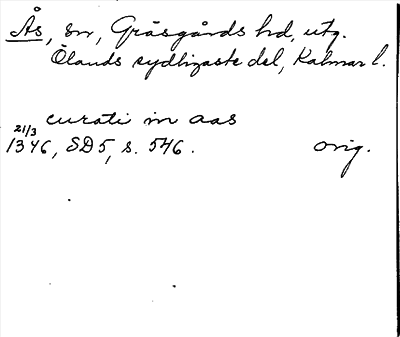 Ås, sn, Gräsgårds hd, utg.
Ölands sydligaste del, Kalmar l.
curati in aas
21/3
1346, SD 5, s. 546.
orig.